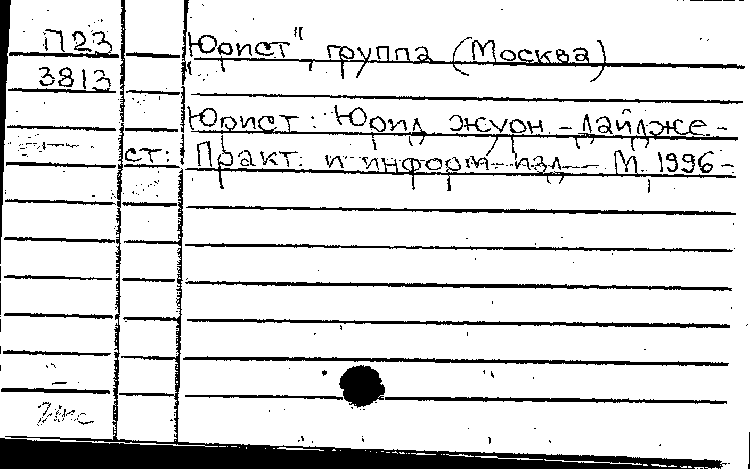 П23 "Юрист", группа (Москва)
3813
Юрист: Юрид. журн.-дайдже-
ст: Практ. и информ. изд. - М., 1996-